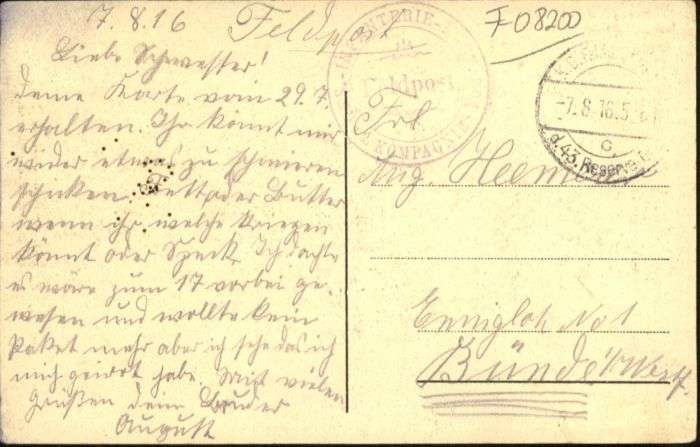 7.8.16 Feldpost
F 08200
Liebe Schwester!
deine Karte vom 29.7.
erhalten. Ihr könnt mir
wider etwas zu schmeren
schicken. Fett oder Butter
wenn ihr welche kriegen
könnt oder Speck. Ich dachte
es wäre zum 17 vorbei ge-
wesen und wollte kein
Paket mehr aber ich sehe das ich
mich geirrt habe. Mit vielen
Grüßen dein Bruder
August
INFANTERIE-
Feldpost
KOMPAGNIE
-7.8.16.5
c.
d. 43. Reserve
Frl.
Aug.
Ennigloh No 1
Bünde i/Westf.